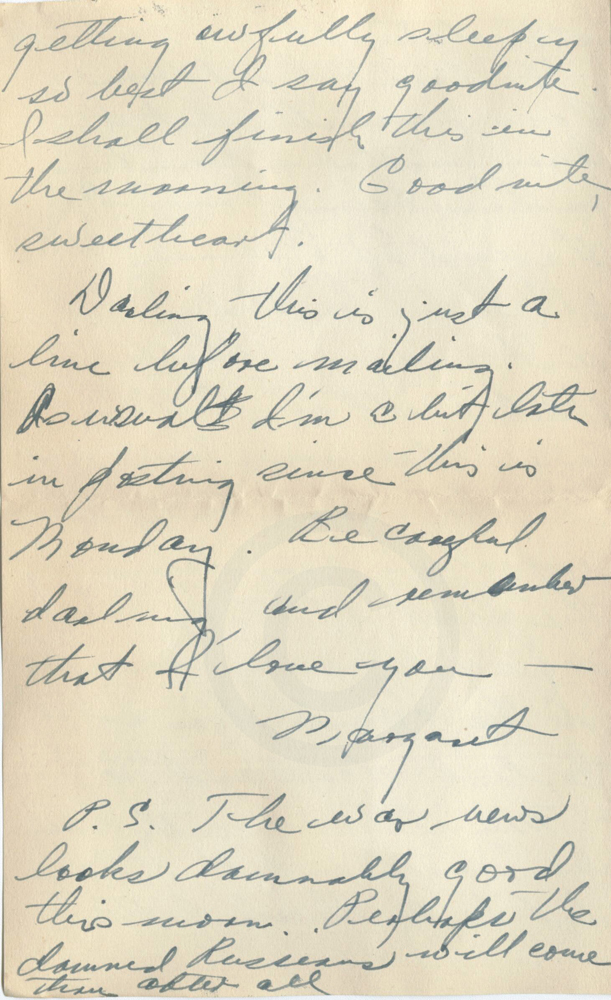 getting awfully sleepy
so best I say goodnite.
I shall finish this in
the morning. Good nite,
sweetheart.
Darling, this is just a
line before mailing.
As usual I'm a bit late
in posting since this is
Monday. Be careful
darling, and remember
that I love you —
Margaret
P.S. The war news
looks damnably good
this morn. Perhaps the
damned Russians will come
thru after all